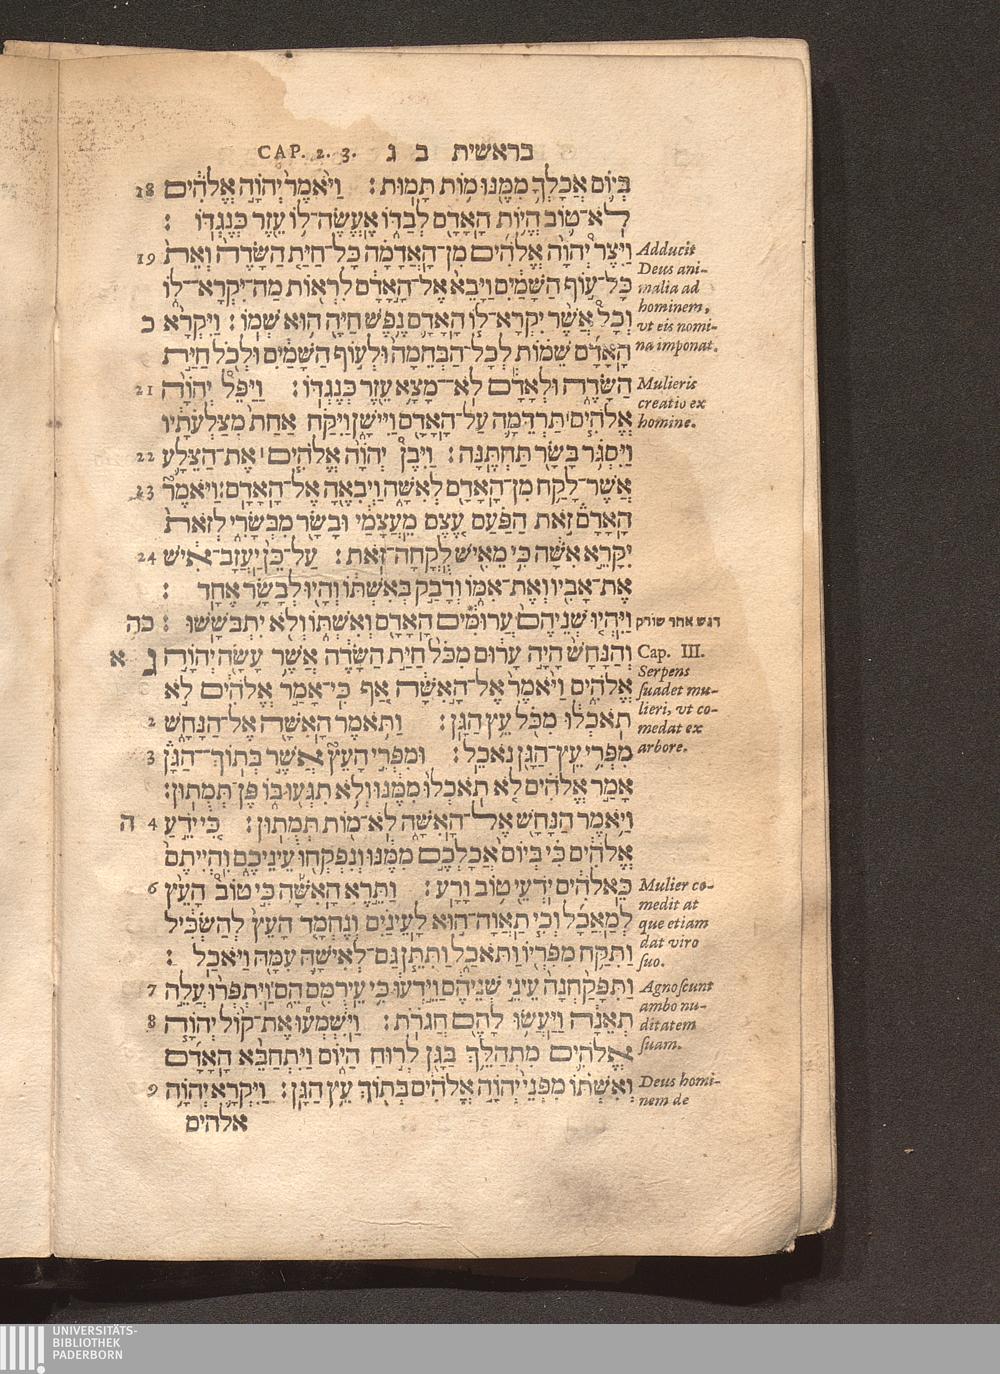 CAP. 2. 3. בראשית ב ג
בְּיוֹם אֲכָלְךָ מִמֶּנּוּ מוֹת תָּמוּת׃ וַיֹּאמֶר יְהוָֹה אֱלֹהִים 18
לֹא־טוֹב הֱיוֹת הָאָדָם לְבַדּוֹ אֶעֱשֶׂה־לּוֹ עֵזֶר כְּנֶגְדּוֹ׃
וַיִּצֶר יְהוָֹה אֱלֹהִים מִן־הָאֲדָמָה כָּל־חַיַּת הַשָּׂדֶה וְאֵת 19
כָּל־עוֹף הַשָּׁמַיִם וַיָּבֵא אֶל־הָאָדָם לִרְאוֹת מַה־יִּקְרָא־לוֹ
וְכֹל אֲשֶׁר יִקְרָא־לוֹ הָאָדָם נֶפֶשׁ חַיָּה הוּא שְׁמוֹ׃ וַיִּקְרָא כ
הָאָדָם שֵׁמוֹת לְכָל־הַבְּהֵמָה וּלְעוֹף הַשָּׁמַיִם וּלְכֹל חַיַּת
הַשָּׂדֶה וּלְאָדָם לֹא־מָצָא עֵזֶר כְּנֶגְדּוֹ׃ וַיַּפֵּל יְהוָֹה 21
אֱלֹהִים׀תַּרְדֵּמָה עַל־הָאָדָם וַיִּישָׁן וַיִּקַּח אַחַת מִצַּלְעֹתָיו
וַיִּסְגֹּר בָּשָׂר תַּחְתֶּנָּה׃ וַיִּבֶן יְהוָֹה אֱלֹהִים׀ אֶת־הַצֵּלָע 22
אֲשֶׁר־לָקַח מִן־הָאָדָם לְאִשָּׁה וַיְבִאֶהָ אֶל־הָאָדָם׃ וַיֹּאמֶר 23
הָאָדָם זֹאת הַפַּעַם עֶצֶם מֵעֲצָמַי וּבָשָׂר מִבְּשָׂרִי לְזֹאת
יִקָּרֵא אִשָּׁה כִּי מֵאִישׁ לֻקֳחָה־זֹּאת׃ עַל־כֵּן יַעֲזָב־אִישׁ 24
אֶת־אָבִיו וְאֶת־אִמּוֹ וְדָבַק בְּאִשְׁתּוֹ וְהָיוּ לְבָשָׂר אֶחָד׃
וַיִּהְיוּ שְׁנֵיהֶם עֲרוּמִּים הָאָדָם וְאִשְׁתּוֹ וְלֹא יִתְבֹּשָׁשׁוּ׃ כה
וְהַנָּחָשׁ הָיָה עָרוּם מִכֹּל חַיַּת הַשָּׂדֶה אֲשֶׁר עָשָׂה יְהוָֹה ג א
אֱלֹהִים וַיֹּאמֶר אֶל־הָאִשָּׁה אַף כִּי־אָמַר אֱלֹהִים לֹא
תֹאכְלוּ מִכֹּל עֵץ הַגָּן׃ וַתֹּאמֶר הָאִשָּׁה אֶל־הַנָּחָשׁ 2
מִפְּרִי עֵץ־הַגָּן נֹאכֵל׃ וּמִפְּרִי הָעֵץ אֲשֶׁר בְּתוֹךְ־הַגָּן 3
אָמַר אֱלֹהִים לֹא תֹאכְלוּ מִמֶּנּוּ וְלֹא תִגְּעוּ בּוֹ פֶּן־תְּמֻתוּן׃
וַיֹּאמֶר הַנָּחָשׁ אֶל־הָאִשָּׁה לֹא־מוֹת תְּמֻתוּן׃ כִּי יֹדֵעַ 4 ה
אֱלֹהִים כִּי בְּיוֹם אֲכָלְכֶם מִמֶּנּוּ וְנִפְקְחוּ עֵינֵיכֶם וִהְיִיתֶם
כֵּאלֹהִים יֹדְעֵי טוֹב וָרָע׃ וַתֵּרֶא הָאִשָּׁה כִּי טוֹב הָעֵץ 6
לְמַאֲכָל וְכִי תַאֲוָה־הוּא לָעֵינַיִם וְנֶחְמָד הָעֵץ לְהַשְׂכִּיל
וַתִּקַּח מִפִּרְיוֹ וַתֹּאכַל וַתִּתֵּן גַּם־לְאִישָׁהּ עִמָּהּ וַיֹּאכַל׃
וַתִּפָּקַחְנָה עֵינֵי שְׁנֵיהֶם וַיֵּדְעוּ כִּי עֵירֻמִּם הֵם וַיִּתְפְּרוּ עֲלֵה 7
תְאֵנָה וַיַּעֲשׂוּ לָהֶם חֲגֹרֹת׃ וַיִּשְׁמְעוּ אֶת־קוֹל יְהוָֹה 8
אֱלֹהִים מִתְהַלֵּךְ בַּגָּן לְרוּחַ הַיּוֹם וַיִּתְחַבֵּא הָאָדָם
וְאִשְׁתּוֹ מִפְּנֵי יְהוָֹה אֱלֹהִים בְּתוֹךְ עֵץ הַגָּן׃ וַיִּקְרָא יְהוָֹה 9
אלהים
Adducit
Deus ani-
malia ad
hominem,
vt eis nomi-
na imponat.
Mulieris
creatio ex
homine.
דגש אחר שורק
Cap. III.
Serpens
suadet mu-
lieri, vt co-
medat ex
arbore.
Mulier co-
medit at
que etiam
dat viro
suo.
Agnoscunt
ambo nu-
ditatem
suam.
Deus homi-
nem de
UNIVERSITÄTS-
BIBLIOTHEK
PADERBORN